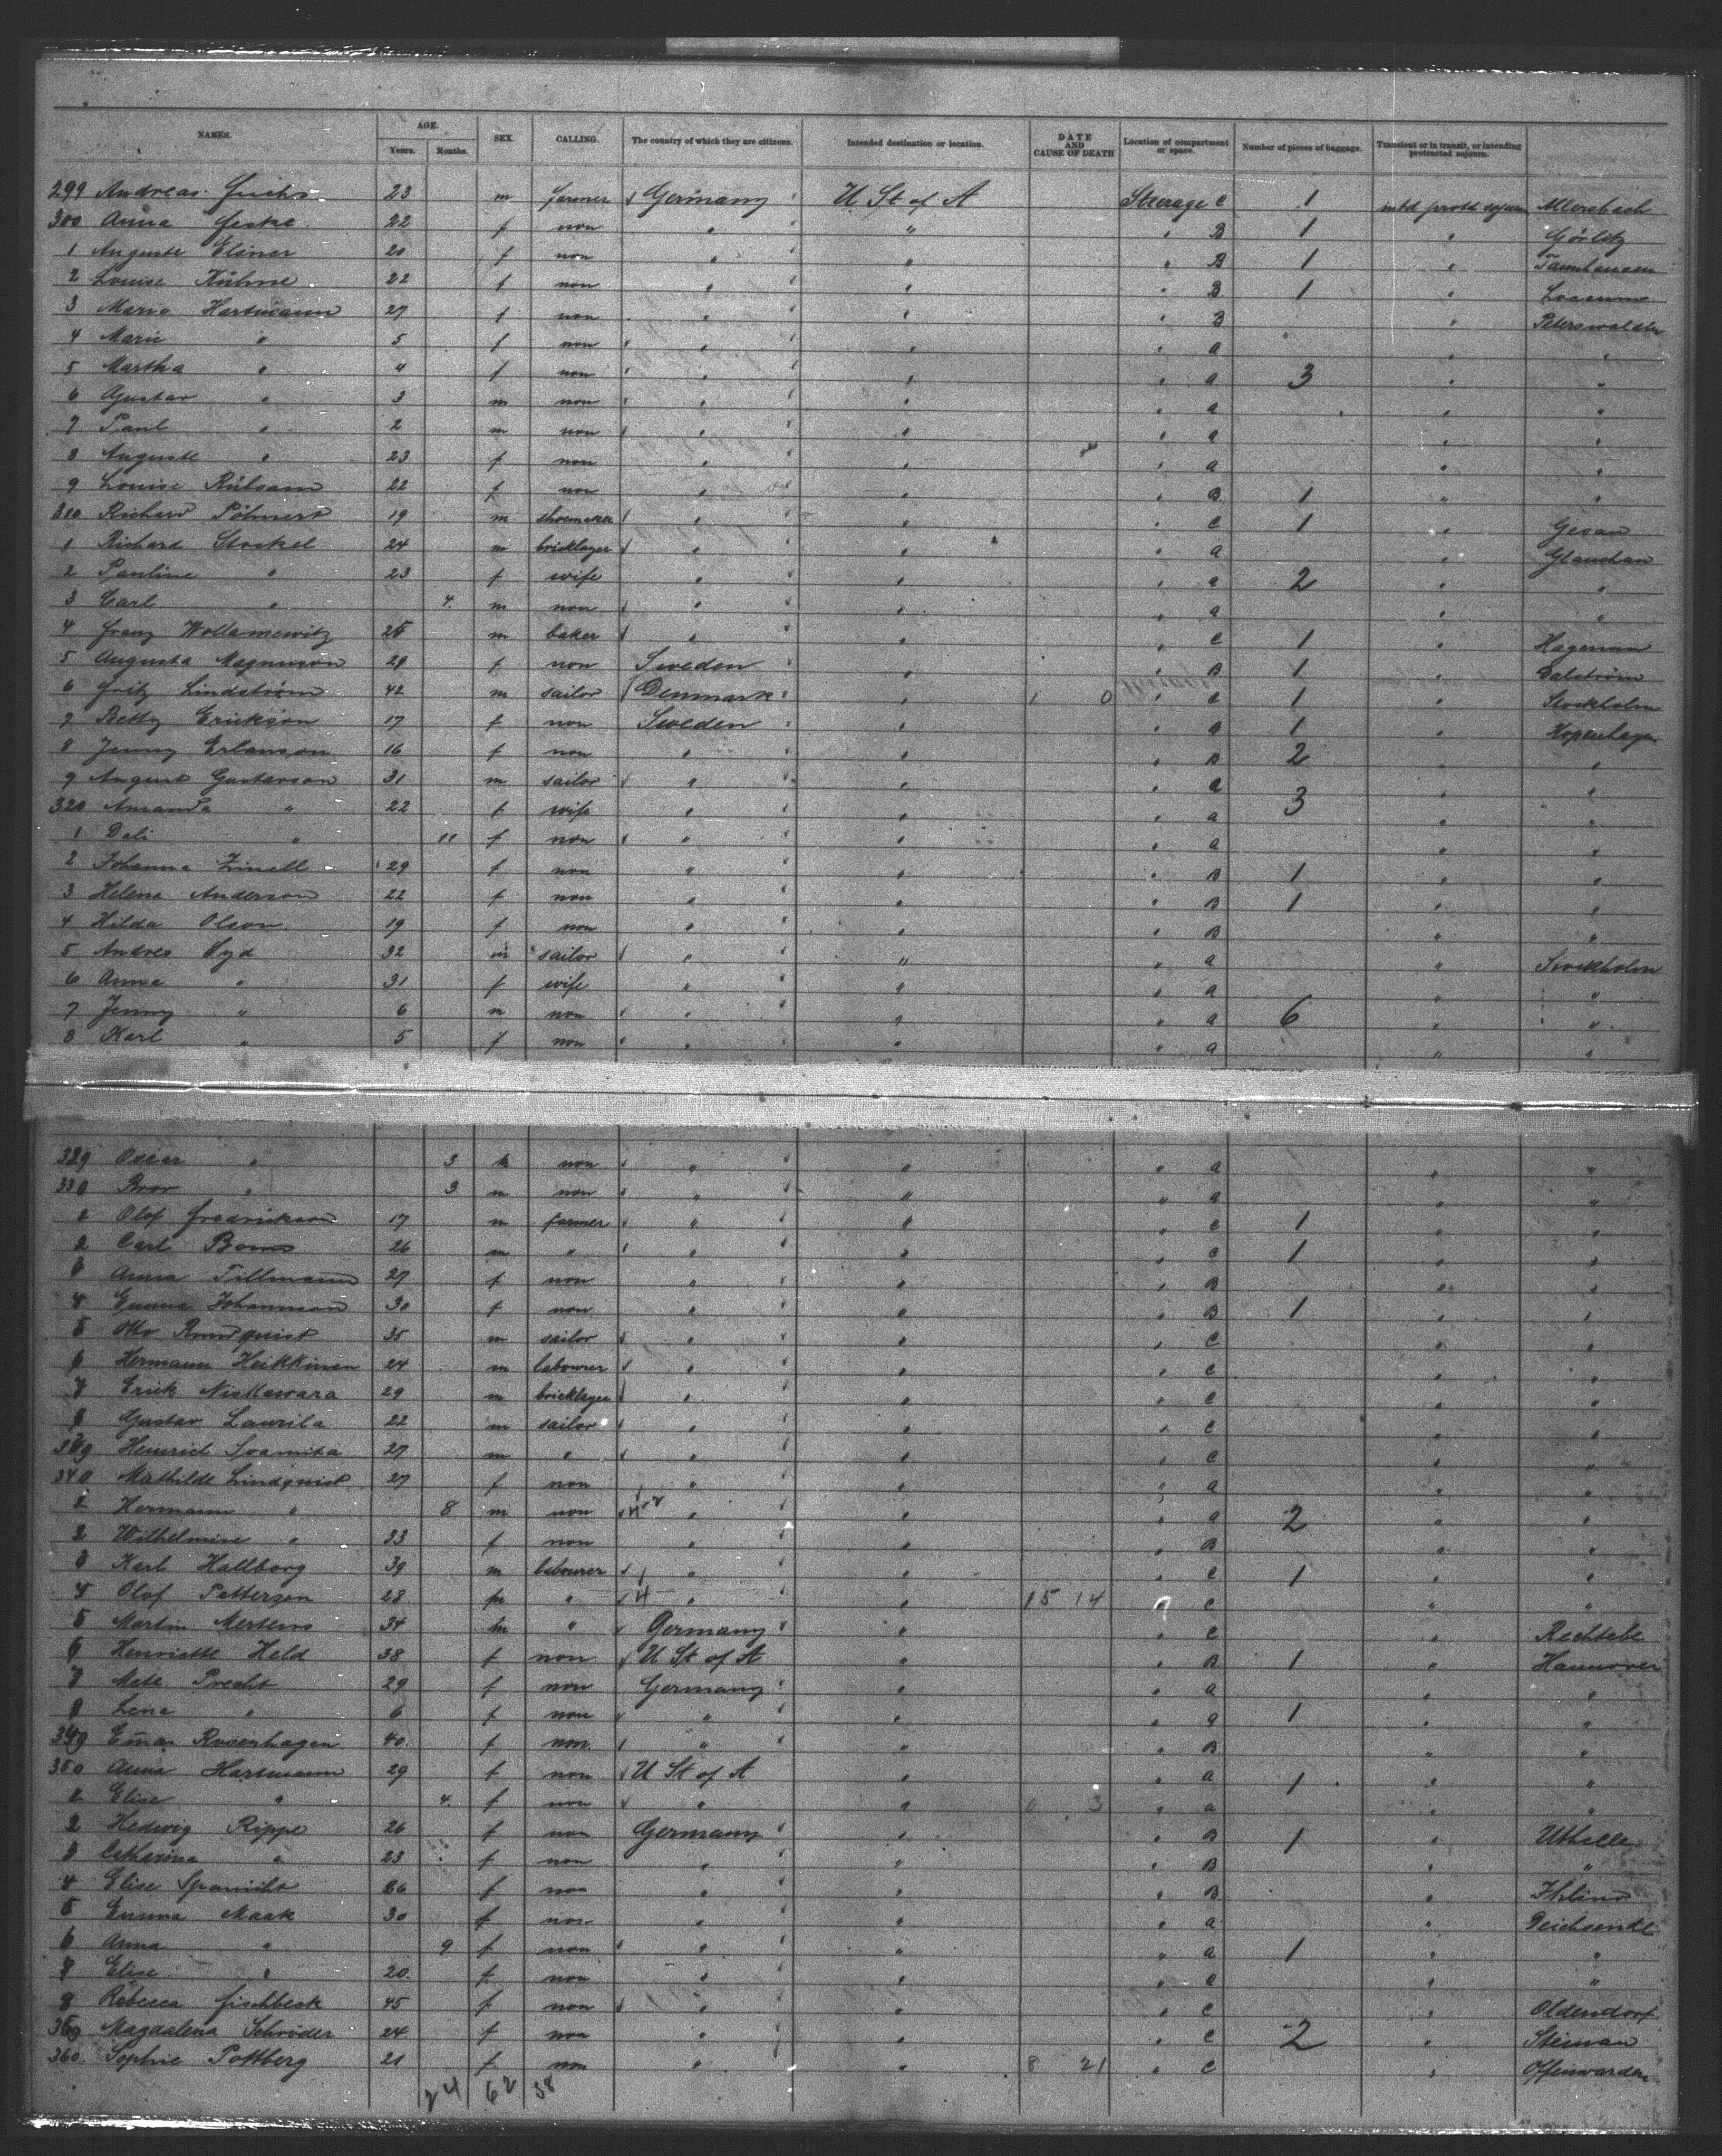 NAMES. AGE. Years. Months. SEX. CALLING. The country of which they are citizens. Intended destination or location. DATE AND CAUSE OF DEATH Location of compartment or space. Number of pieces of baggage. Transient or in transit, or intending protracted sojourn.
299 Andreas Fuchs 23 m farmer Germany U St of A Steerage C 1 intd prott sojurn Allersbach
300 Anna Jeske 22 f non " " " B 1 " Görlitz
1 Auguste Elsner 20 f non " " " B 1 " Tannhausen
2 Louise Kühne 22 f non " " " B 1 " Loccum
3 Maria Hartmann 27 f non " " " B " Peterswalde
4 Marie " 5 f non " " " a " "
5 Martha " 4 f non " " " a 3 " "
6 Gustav " 3 m non " " " a " "
7 Paul " 2 m non " " " a " "
8 Auguste " 23 f non " " " a " "
9 Louise Rübsam 22 f non " " " B 1 " "
310 Richard Pöhnert 19 m shoemaker " " " C 1 "
1 Richard Stockel 24 m bricklayer " " " a " Glauchau
2 Pauline " 23 f wife " " " a 2 " "
3 Carl " 4 m non " " " a " "
4 Franz Wollamewitz m baker " " " C 1 " Hagenau
5 Augusta Magnuson 29 f non Sweden " " B 1 " Dalström
6 Fritz Lindström 42 m sailor Denmark " 1 0 " C 1 " Stockholm
7 Betty Erickson 17 f non Sweden " " a 1 " Kopenhagen
8 Jenny Erlanson 16 f non " " " B 2 " "
9 August Gustavson 31 m sailor " " " a " "
320 Amanda " 22 f wife " " " a 3 " "
1 Deli " 11 f non " " " a " "
2 Johanna Zinell 29 f non " " " B 1 " "
3 Helena Anderson 22 f non " " " B 1 " "
4 Hilda Olson 19 f non " " " B " "
5 Andres Syd 32 m sailor " " " a " Stockholm
6 Anna " 31 f wife " " " a " "
7 Jenny " 6 m non " " " a 6 " "
8 Karl " 5 f non " " " a " "
329 Oscar " 3 m non " " " a " "
330 Bror " 3 m non " " " a " "
1 Olof Fredrickson 17 m farmer " " " C 1 " "
2 Carl Boms 26 m " " " " C 1 " "
3 Anna Tillmann 27 f non " " " B " "
4 Emma Johannson 30 f non " " " B 1 " "
5 Otto Rundquist 35 m sailor " " " C " "
6 Hermann Heikkinen 24 m labourer " " " C " "
7 Erick Niskawara 29 m bricklayer " " " C " "
8 Gustav Laurila 22 m sailor " " " C " "
339 Heinrich Soamita 27 m " " " " C " "
340 Mathilde Lindquist 27 f non " " " a " "
1 Hermann " 8 m non " " " a 2 " "
2 Wilhelmine " 33 f non " " " B " "
3 Karl Hallborg 39 m labourer " " " C 1 " "
4 Olof Petterson 28 m " H " " 15 14 " C " "
5 Martin Mertens 34 m " Germany " " C " Rechtebe
6 Henriette Held 38 f non U St of A " " B 1 " Hannover
7 Mete Precht 29 f non Germany " " a " "
8 Lena " 6 f non " " " a 1 " "
349 Emma Rosenhagen 40 f non " " " B " "
350 Anna Hartmann 29 f non U St of A " " a 1 " "
1 Elise " 4 f non " " 0 3 " a " "
2 Hedwig Rippe 26 f non Germany " " B 1 " Uthlede
3 Catharina " 23 f non " " " B " "
4 Elise Spanicht 26 f non " " " B "
5 Emma Maak 30 f non " " " a " Deichsende
6 Anna " 9 f non " " " a 1 " "
7 Elise " 20 f non " " " C " "
8 Rebecca Fischbeck 45 f non " " " C " Oldendorf
359 Magdalena Schröder 24 f non " " " C 2 "
360 Sophie Pottberg 21 f non " " 8 21 " C " Offenwarden
24 62 38